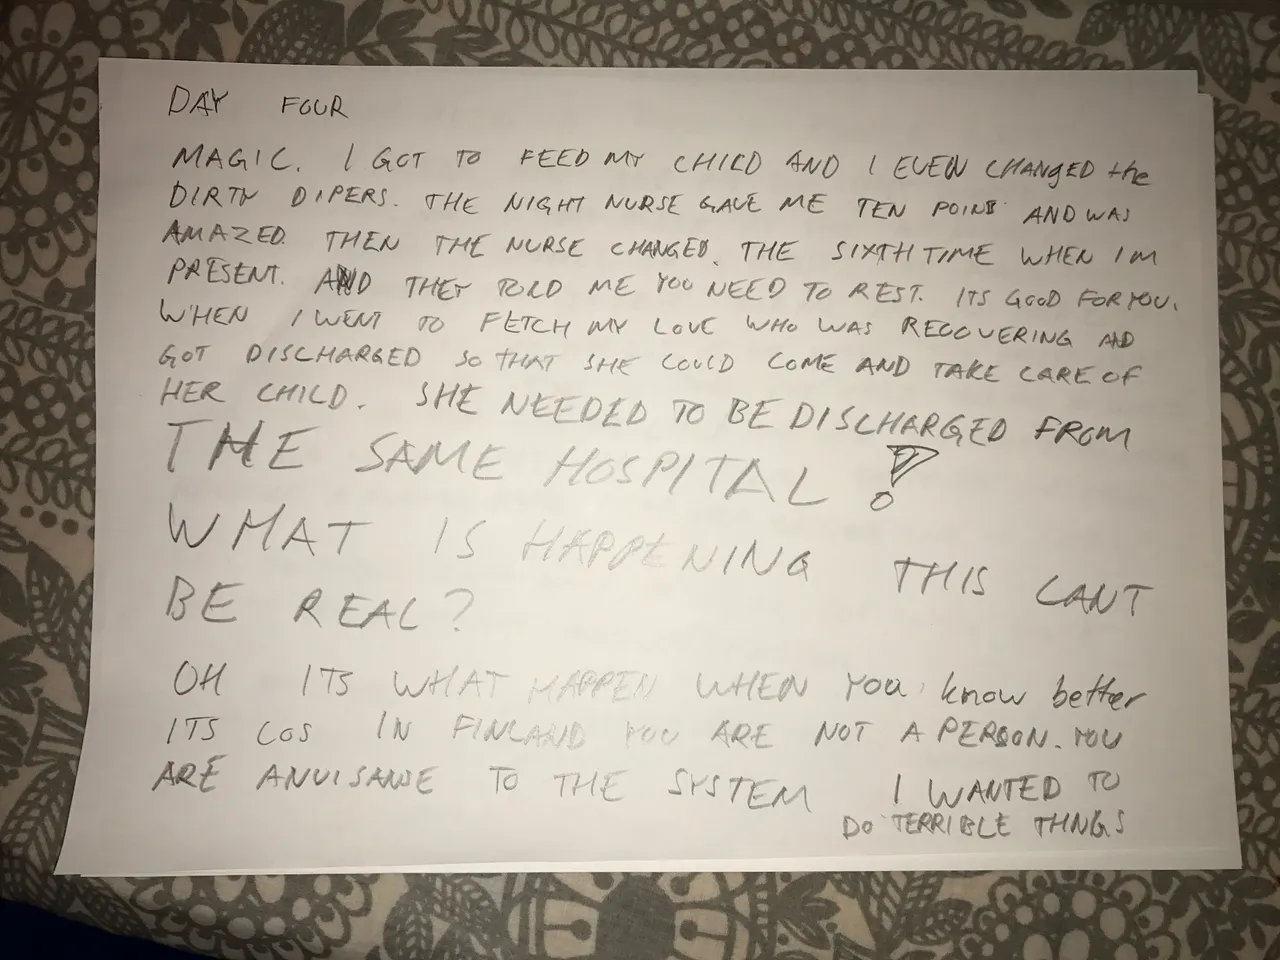 DAY FOUR
MAGIC. I GOT TO FEED MY CHILD AND I EVEN CHANGED the
DIRTY DIPERS. THE NIGHT NURSE GAVE ME TEN POINTS AND WAS
AMAZED. THEN THE NURSE CHANGED. THE SIXTH TIME WHEN IM
PRESENT. AND THEY TOLD ME YOU NEED TO REST. ITS GOOD FOR YOU.
WHEN I WENT TO FETCH MY LOVE WHO WAS RECOVERING AD
GOT DISCHARGED SO THAT SHE COULD COME AND TAKE CARE OF
HER CHILD. SHE NEEDED TO BE DISCHARGED FROM
THE SAME HOSPITAL ?
WHAT IS HAPPENING THIS CANT
BE REAL?
OH ITS WHAT HAPPEN WHEN YOU know better
ITS COS IN FINLAND YOU ARE NOT A PERSON. YOU
ARE ANUISANSE TO THE SYSTEM I WANTED TO
DO TERRIBLE THNGS